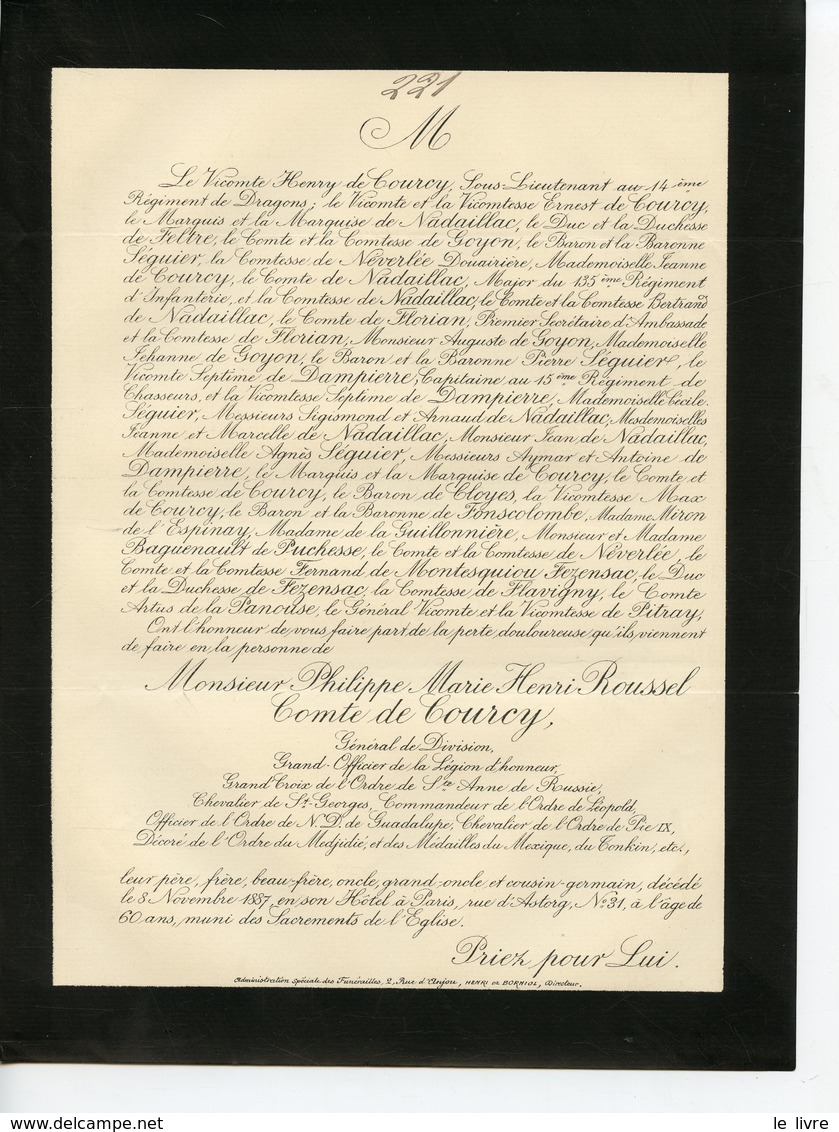 221
M
Le Vicomte Henry de Courcy, Sous-Lieutenant au 14ème
Régiment de Dragons; le Vicomte et la Vicomtesse Ernest de Courcy,
le Marquis et la Marquise de Nadaillac, le Duc et la Duchesse
de Feltre, le Comte et la Comtesse de Goyon, le Baron et la Baronne
Séguier, la Comtesse de Néverlée Douairière, Mademoiselle Jeanne
de Courcy, le Comte de Nadaillac, Major du 135ème Régiment
d'Infanterie, et la Comtesse de Nadaillac, le Comte et la Comtesse Bertrand
de Nadaillac, le Comte de Florian, Premier Secrétaire d'Ambassade
et la Comtesse de Florian, Monsieur Auguste de Goyon, Mademoiselle
Jehanne de Goyon, le Baron et la Baronne Pierre Séguier, le
Vicomte Septime de Dampierre, Capitaine au 15ème Régiment de
Chasseurs, et la Vicomtesse Septime de Dampierre, Mademoiselle Cécile
Séguier, Messieurs Sigismond et Arnaud de Nadaillac, Mesdemoiselles
Jeanne et Marcelle de Nadaillac, Monsieur Jean de Nadaillac,
Mademoiselle Agnès Séguier, Messieurs Aymar et Antoine de
Dampierre, le Marquis et la Marquise de Courcy, le Comte et
la Comtesse de Courcy, le Baron de Cloyes, la Vicomtesse Max
de Courcy, le Baron et la Baronne de Fonscolombe, Madame Miron
de l'Espinay, Madame de la Guillonnière, Monsieur et Madame
Baguenault de Puchesse, le Comte et la Comtesse de Néverlée, le
Comte et la Comtesse Fernand de Montesquiou Fezensac, le Duc
et la Duchesse de Fezensac, la Comtesse de Flavigny, le Comte
Artus de la Panouse, le Général Vicomte et la Vicomtesse de Pitray,
Ont l'honneur de vous faire part de la perte douloureuse qu'ils viennent
de faire en la personne de
Monsieur Philippe Marie Henri Roussel
Comte de Courcy,
Général de Division,
Grand-Officier de la Légion d'honneur,
Grand Croix de l'Ordre de Ste Anne de Russie,
Chevalier de St-Georges, Commandeur de l'Ordre de Léopold,
Officier de l'Ordre de N.D. de Guadalupe, Chevalier de l'Ordre de Pie IX,
Décoré de l'Ordre du Medjidié, et des Médailles du Mexique, du Tonkin, etc.,
leur père, frère, beau-frère, oncle, grand-oncle et cousin-germain, décédé
le 8 Novembre 1887, en son Hôtel à Paris, rue d'Astorg, No 31, à l'âge de
60 ans, muni des Sacrements de l'Eglise.
Priez pour Lui.
Administration Spéciale des Funérailles, 2, Rue d'Anjou, HENRI DE BORNIOL, Directeur.
le livre